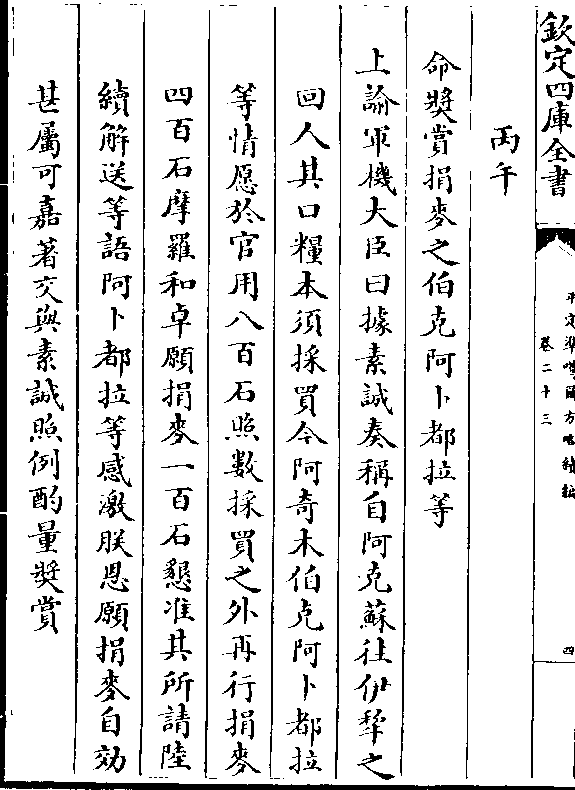 欽定四庫全書
平定準噶爾方略續編
卷二十三
四
丙午
命奬賞捐麥之伯克阿卜都拉等
上諭軍機大臣曰據素誠奏稱自阿克蘇往伊犂之
回人其口糧本須採買今阿奇木伯克阿卜都拉
等情愿於官用八百石照數採買之外再行捐麥
四百石摩羅和卓願捐麥一百石懇准其所請陸
續解送等語阿卜都拉等感激朕恩願捐麥自効
甚屬可嘉著交與素誠照例酌量奬賞